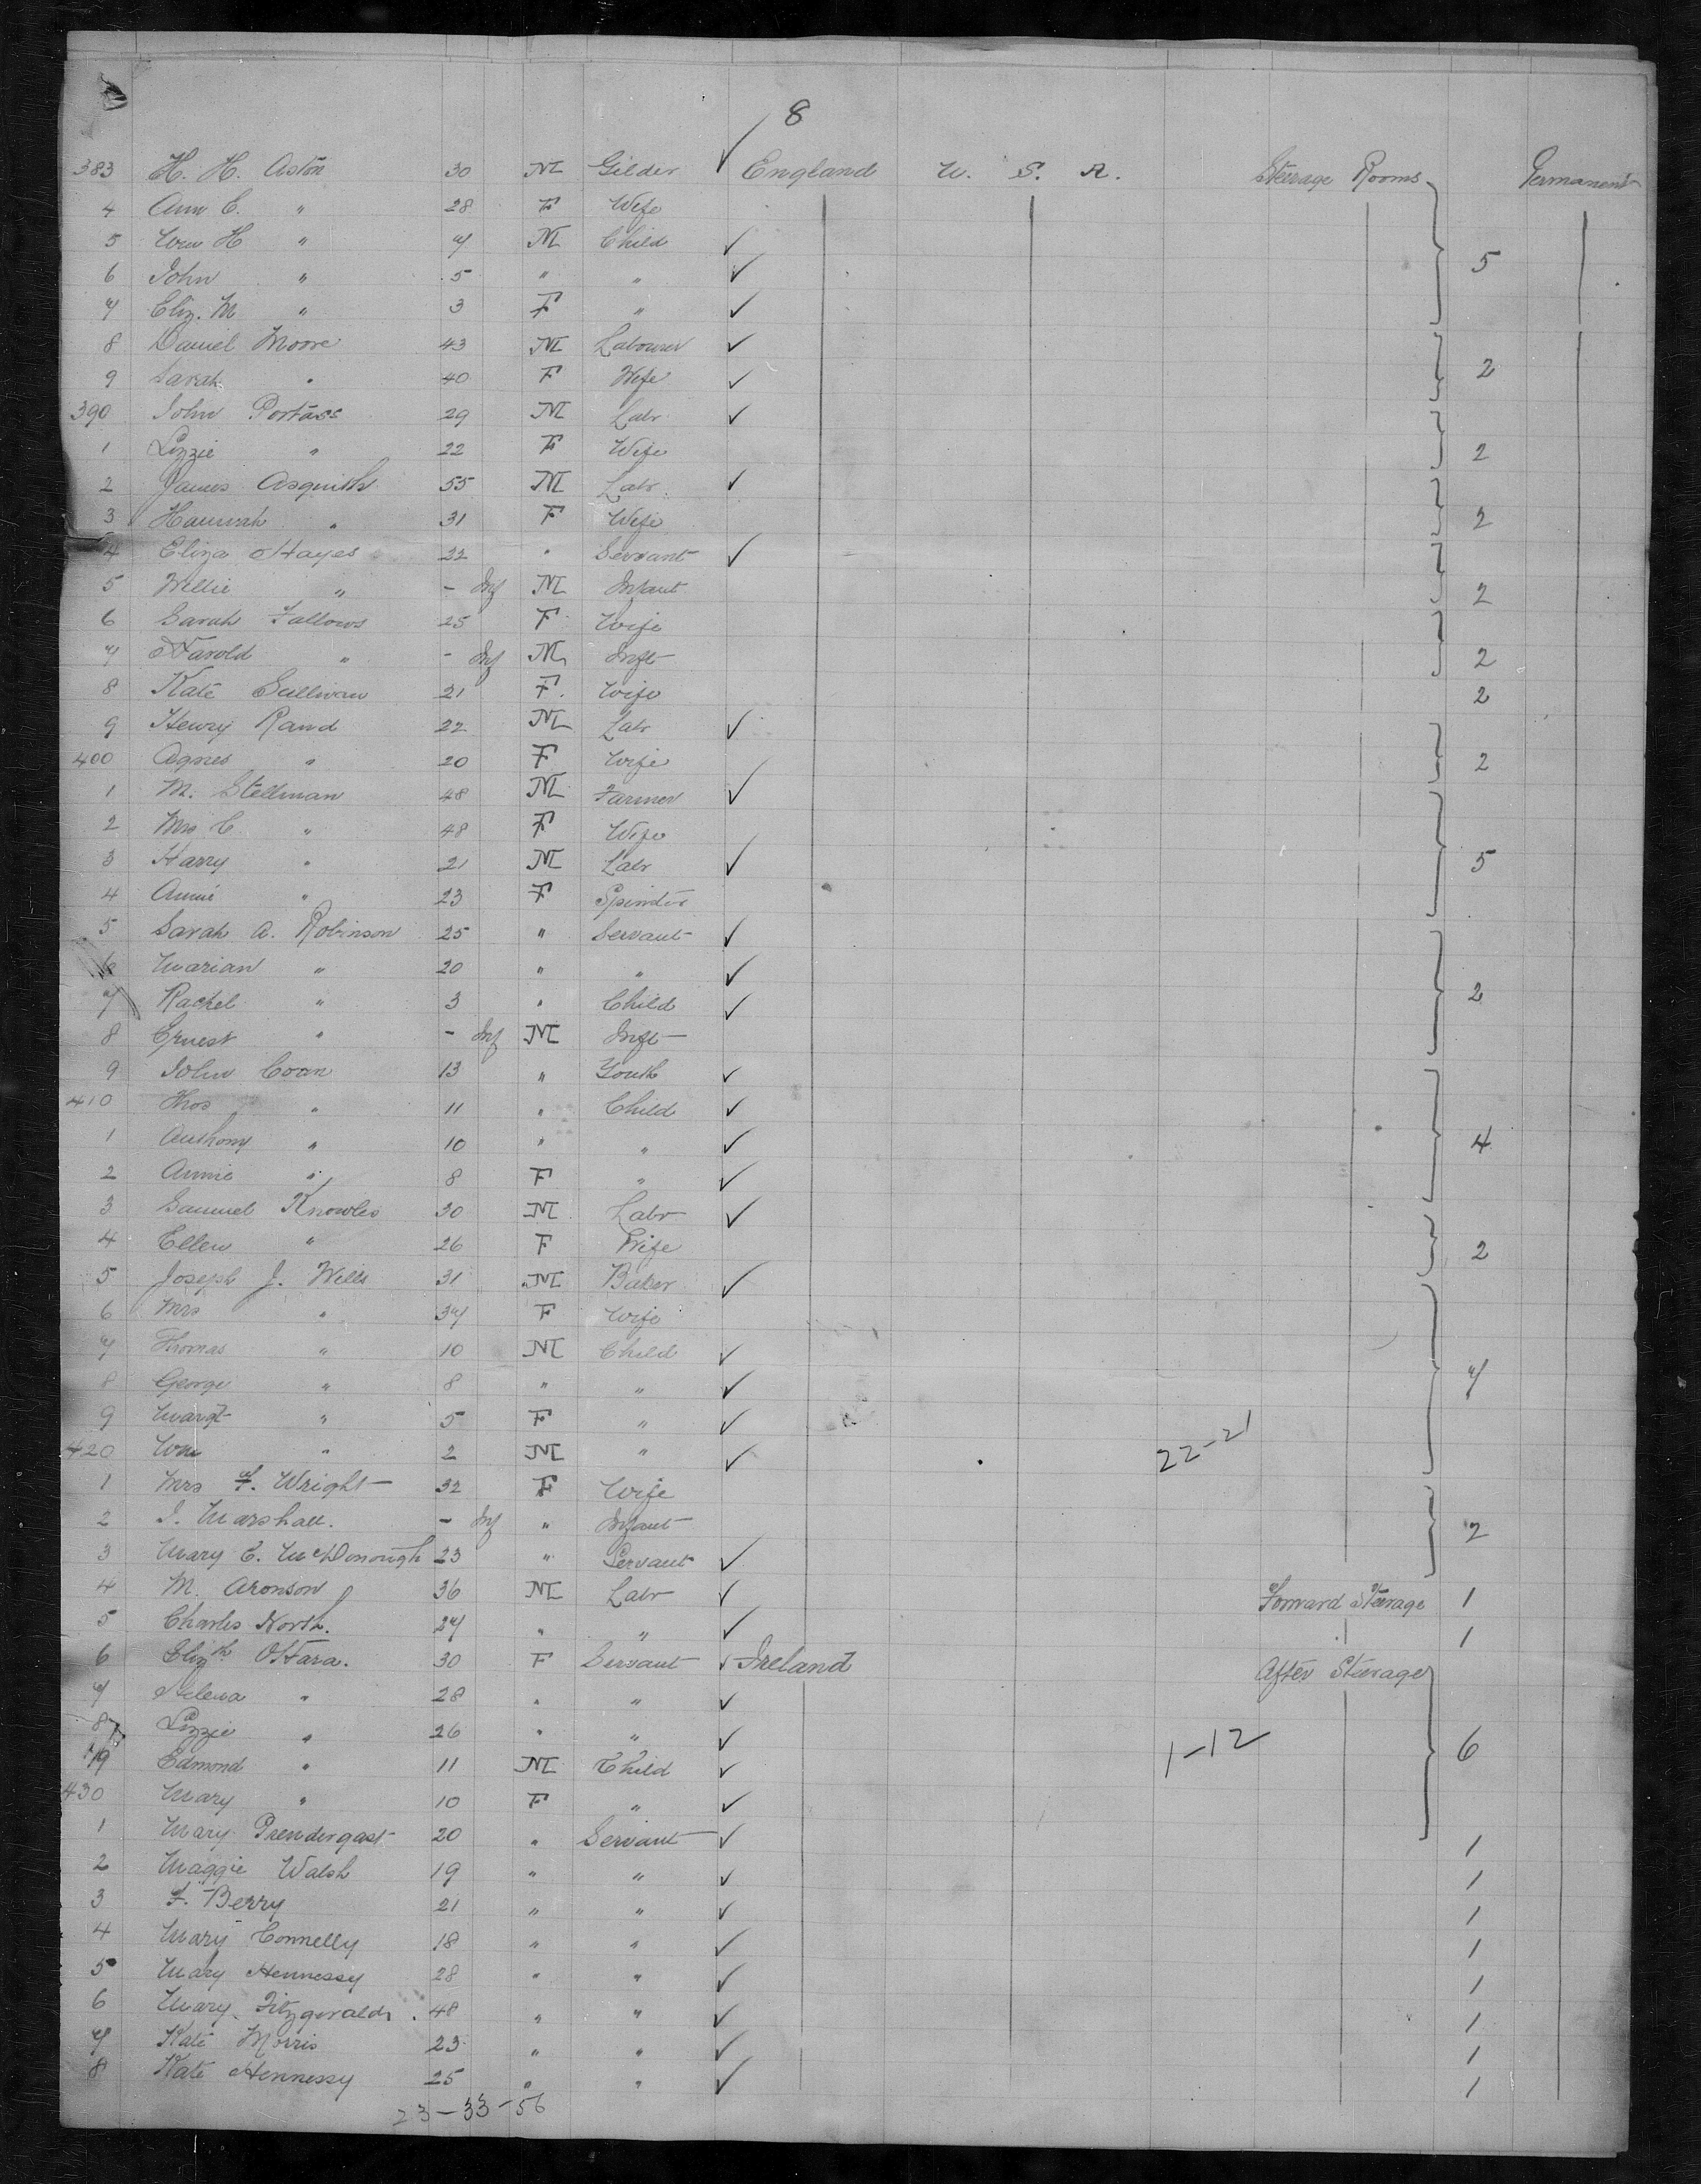 8
383 H. H. Aston 30 M Gilder ✓ England U. S. A. Steerage Rooms Permanent
4 Ann E. " 28 F Wife
5 Wm H " 7 M Child ✓ 5
6 John " 5 " " ✓
7 Eliz. M " 3 F " ✓
8 Daniel Moore 43 M Labourer ✓ 2
9 Sarah " 40 F Wife ✓
390 John Portass 29 M Labr ✓
1 Lizzie " 22 F Wife 2
2 James Asquith 55 M Labr. ✓
3 Hannah " 31 F Wife 2
4 Eliza Hayes 22 " Servant ✓
5 Willie " - Inf M Infant 2
6 Sarah Fallows 25 F Wife
7 Harold " - Inf M Inft 2
8 Kate Sullivan 21 F. Wife 2
9 Henry Rand 22 M Labr ✓
400 Agnes " 20 F Wife 2
1 M. Stellman 48 M Farmer ✓
2 Mrs C " 48 F Wife
3 Harry " 21 M Labr ✓ 5
4 Annie " 23 F Spinster
5 Sarah A. Robinson 25 " Servant ✓
6 Marian " 20 " " ✓
7 Rachel " 3 " Child ✓ 2
8 Ernest " - Inf M Inft
9 John Coan 13 " Youth ✓
410 Thos " 11 " Child ✓
1 Anthony " 10 " " ✓ 4
2 Annie " 8 F " ✓
3 Samuel Knowles 30 M Labr ✓
4 Ellen " 26 F Wife 2
5 Joseph J. Wells 31 M Baker ✓
6 Mrs " 37 F Wife
7 Thomas " 10 M Child ✓
8 George " 8 " " ✓ 7
9 Margt " 5 F " ✓
420 Wm " 2 M " ✓ 22-21
1 Mrs F. Wright 32 F Wife
2 I. Marshall. - Inf " Infant 2
3 Mary E. McDonough 23 " Servant ✓
4 M. Aronson 36 M Labr ✓ Forward Steerage 1
5 Charles North. 27 " " ✓ 1
6 Elizth O'Hara. 30 F Servant ✓ Ireland After Steerage
7 Helena " 28 " " ✓
8 Lizzie " 26 " " ✓ 1-12 6
9 Edmond " 11 M Child ✓
430 Mary " 10 F " ✓
1 Mary Prendergast 20 " Servant ✓ 1
2 Maggie Walsh 19 " " ✓ 1
3 F. Berry 21 " " ✓ 1
4 Mary Connelly 18 " " ✓ 1
5 Mary Hennessy 28 " " ✓ 1
6 Mary Fitzgerald 48 " " ✓ 1
7 Kate Morris 23 " " ✓ 1
8 Kate Hennessy 25 " " ✓ 1
23-33-56